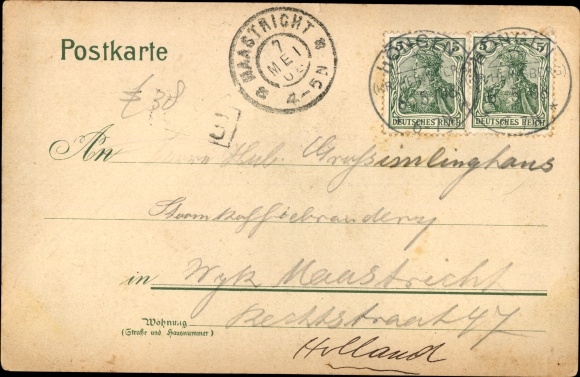 Postkarte
MAASTRICHT 8
7
MEI
8 4-5N
5 5
DEUTSCHES REICH DEUTSCHES REICH
HÖNGEN
£ 38
An Herrn Hub. Grußimlinghaus
Stoomkoffiebrandery
in Wyk Maastricht
Wohnung
(Straße und Hausnummer)
Rechtstraat 47
Holland